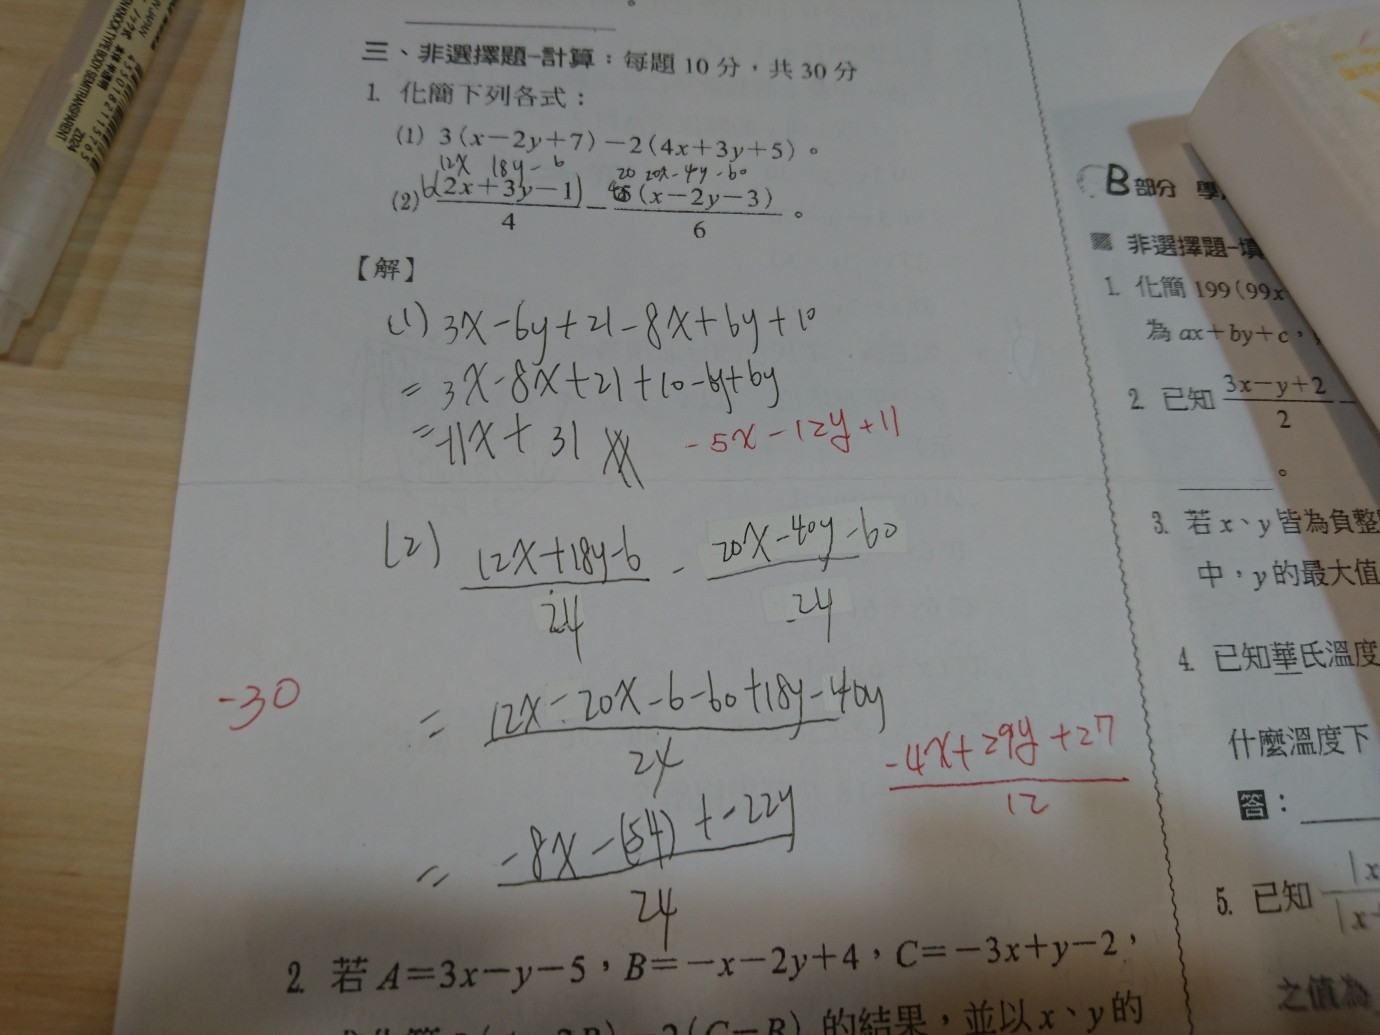 三、非選擇題-計算：每題10分，共30分
1. 化簡下列各式：
(1) 3(x-2y+7)-2(4x+3y+5)。
12x 18y-6 20 20x-4y-60
(2) 6(2x+3y-1)/4 - 5(x-2y-3)/6 。
【解】
(1) 3x-6y+21-8x+6y+10
=3x-8x+21+10-6y+6y
=-11x+31
-5x-12y+11
(2) (12x+18y-6)/24 - (20x-40y-60)/24
-30
= (12x-20x-6-60+18y-40y)/24
(-4x+29y+27)/12
= (-8x-(54)+-22y)/24
2. 若A=3x-y-5，B=-x-2y+4，C=-3x+y-2，
的結果，並以x、y的
B部分
非選擇題-填
1. 化簡199(99x
為ax+by+c，
2. 已知 (3x-y+2)/2 -
。
3. 若x、y皆為負整
中，y的最大值
4. 已知華氏溫度
什麼溫度下
答：
5. 已知 |x
|x
之值為
2024